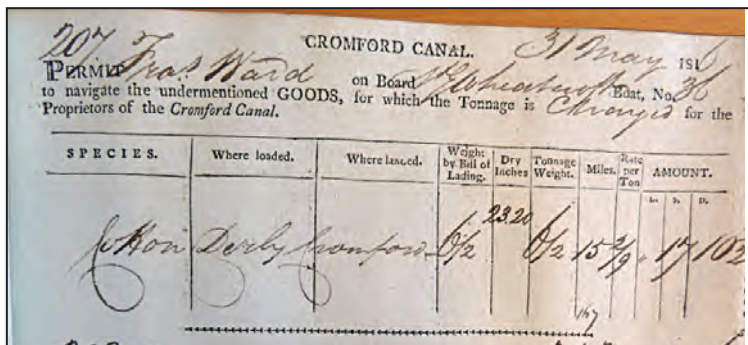 207 CROMFORD CANAL. 31 May 1816
PERMIT Fras. Ward on Board Wheatcroft Boat, No. 36
to navigate the undermentioned GOODS, for which the Tonnage is Charged for the
Proprietors of the Cromford Canal.
SPECIES. Where loaded. Where landed. Weight by Bill of Lading. Dry Inches Tonnage Weight. Miles. Rate per Ton AMOUNT.
L. S. D.
23.20
Cotton Derby Cromford 6/2 6/2 15 2/9 17